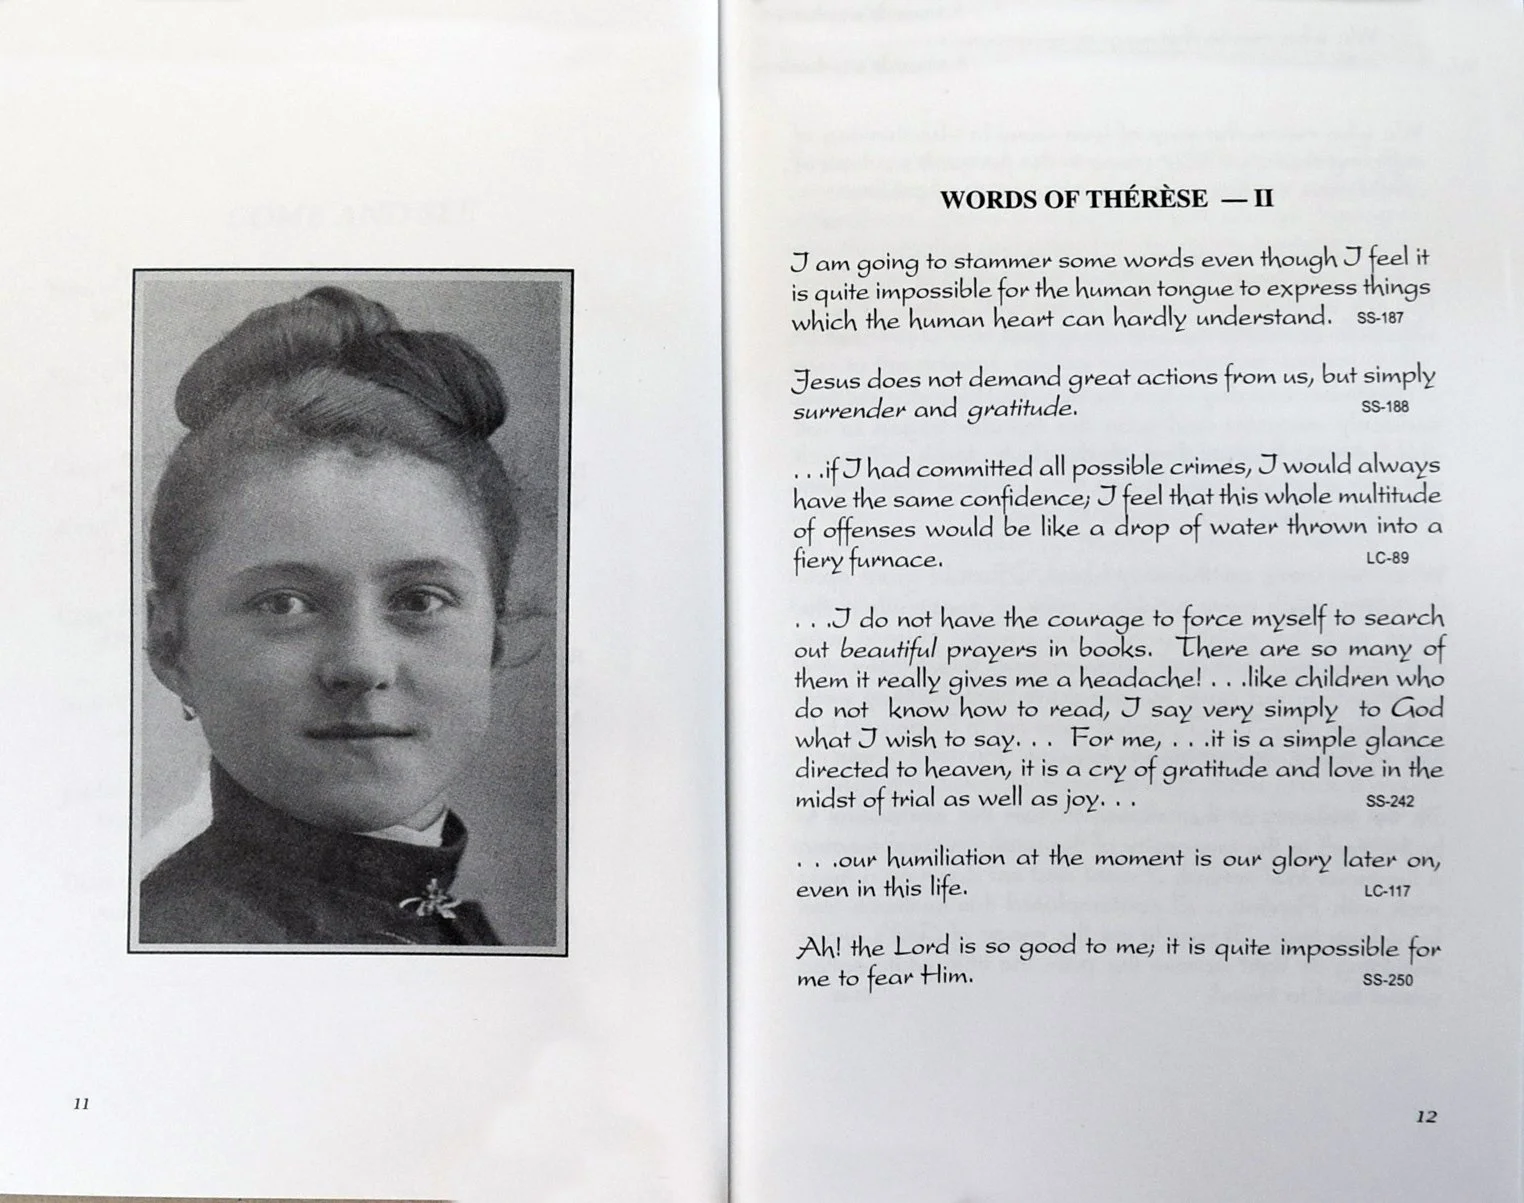 11
WORDS OF THÉRÈSE — II
I am going to stammer some words even though I feel it
is quite impossible for the human tongue to express things
which the human heart can hardly understand. SS-187
Jesus does not demand great actions from us, but simply
surrender and gratitude. SS-188
. . .if I had committed all possible crimes, I would always
have the same confidence; I feel that this whole multitude
of offenses would be like a drop of water thrown into a
fiery furnace. LC-89
. . .I do not have the courage to force myself to search
out beautiful prayers in books. There are so many of
them it really gives me a headache! . . .like children who
do not know how to read, I say very simply to God
what I wish to say. . . For me, . . .it is a simple glance
directed to heaven, it is a cry of gratitude and love in the
midst of trial as well as joy. . . SS-242
. . .our humiliation at the moment is our glory later on,
even in this life. LC-117
Ah! the Lord is so good to me; it is quite impossible for
me to fear Him. SS-250
12